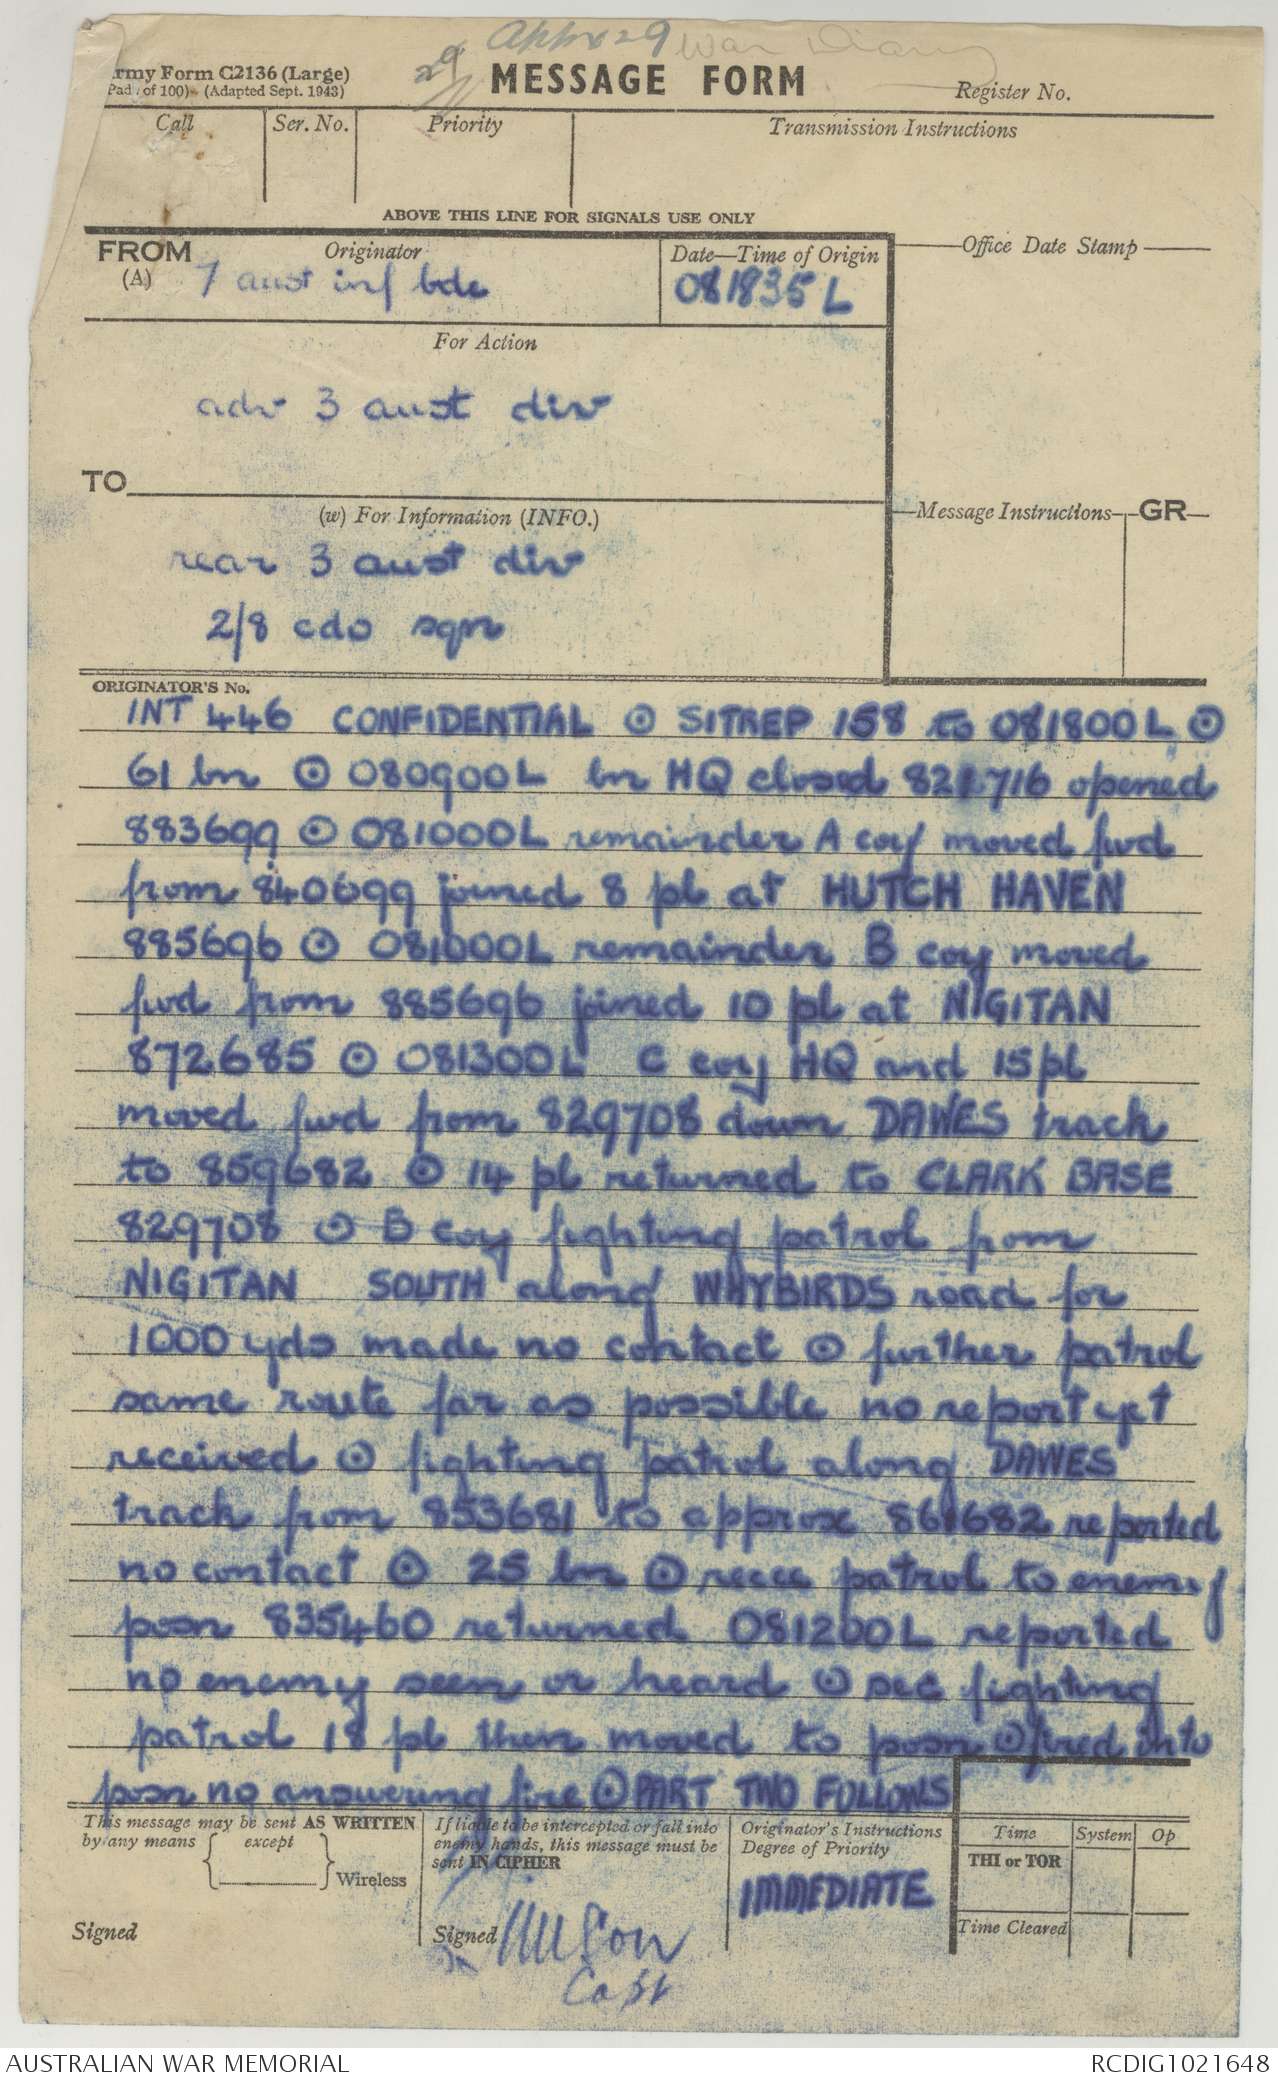 Appx 29 War Diary
29
Army Form C2136 (Large)
(Pads of 100)- (Adapted Sept. 1943)
MESSAGE FORM
Register No.
Call Ser. No. Priority Transmission Instructions
ABOVE THIS LINE FOR SIGNALS USE ONLY
FROM Originator Date—Time of Origin Office Date Stamp
(A) 7 aust inf bde 081835L
For Action
adv 3 aust div
TO
(w) For Information (INFO.) Message Instructions GR
rear 3 aust div
2/8 cdo sqn
ORIGINATOR'S No.
INT 446 CONFIDENTIAL ⊙ SITREP 158 to 081800L ⊙
61 bn ⊙ 080900L bn HQ closed 821716 opened
883699 ⊙ 081000L remainder A coy moved fwd
from 840699 joined 8 pl at HUTCH HAVEN
885696 ⊙ 081000L remainder B coy moved
fwd from 885696 joined 10 pl at NIGITAN
872685 ⊙ 081300L C coy HQ and 15 pl
moved fwd from 829708 down DAWES track
to 859682 ⊙ 14 pl returned to CLARK BASE
829708 ⊙ B coy fighting patrol from
NIGITAN SOUTH along WHYBIRDS road for
1000 yds made no contact ⊙ further patrol
same route far as possible no report yet
received ⊙ fighting patrol along DAWES
track from 853681 to approx 861682 reported
no contact ⊙ 25 bn ⊙ recce patrol to enemy
posn 835460 returned 081200L reported
no enemy seen or heard ⊙ sec fighting
patrol 18 pl then moved to posn ⊙ fired into
posn no answering fire ⊙ PART TWO FOLLOWS
This message may be sent AS WRITTEN
by any means except
Wireless
Signed
If liable to be intercepted or fall into
enemy hands, this message must be
sent IN CIPHER
Signed
Capt
Originator's Instructions
Degree of Priority
IMMEDIATE
Time System Op
THI or TOR
Time Cleared
AUSTRALIAN WAR MEMORIAL RCDIG1021648